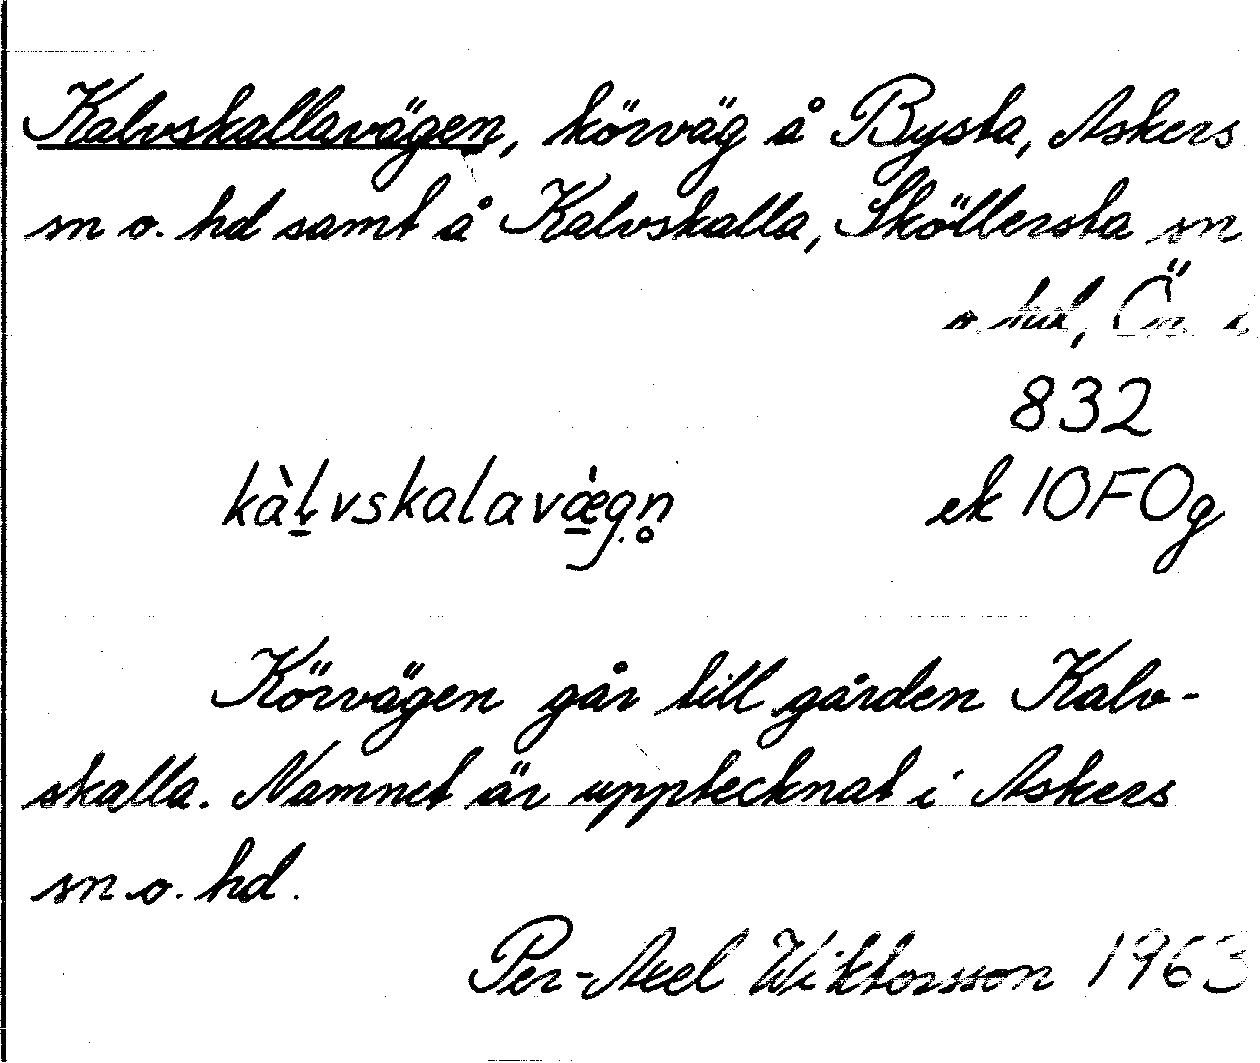 Kalvskallavägen, körväg å Bysta, Askers
sn o. hd samt å Kalvskalla, Sköllersta sn
o. hd,
832
kàḷvskalavæ̀gn̥
ek 10F0g
Körvägen går till gården Kalv-
skalla. Namnet är upptecknat i Askers
sn o. hd.
Per-Axel Wiktorsson 1963